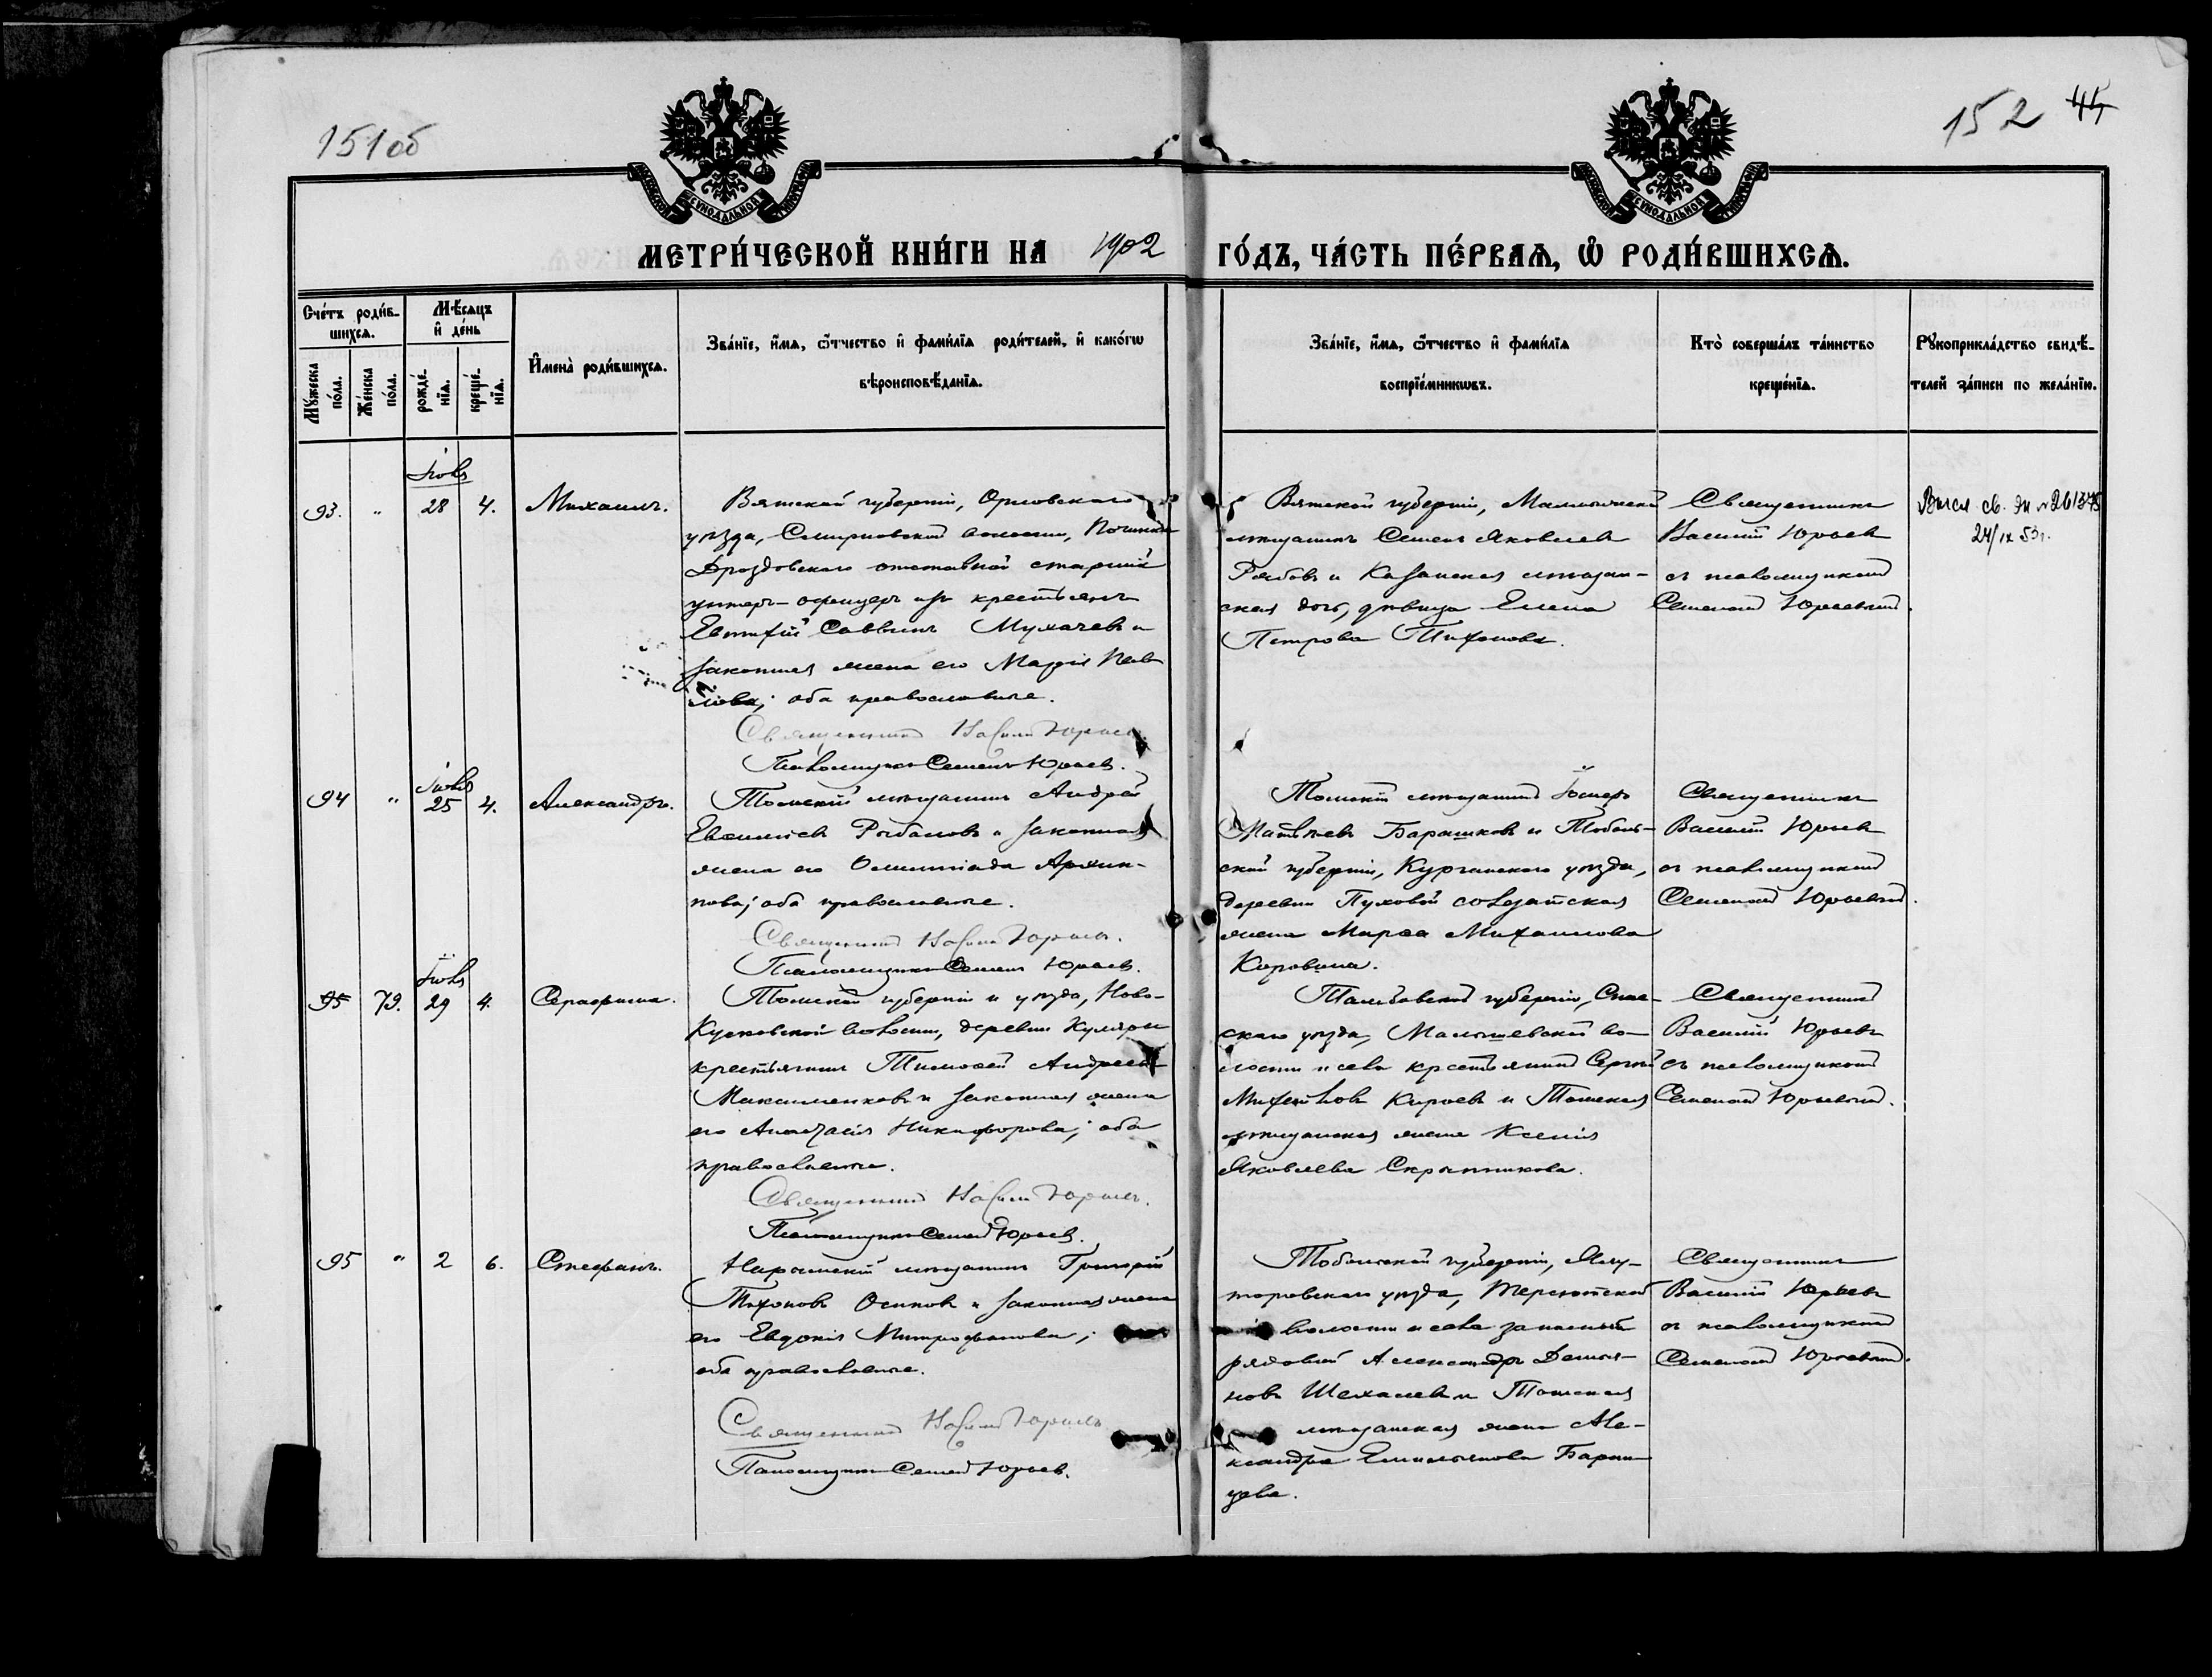 151об
152 44
МЕТРИ́ЧЕСКОЙ КНИ́ГИ НА 1902 ГО́ДЪ, ЧА́СТЬ ПЕ́РВАѦ, Ѡ҆ РОДИ́ВШИХСѦ.
Сче́тъ роди́в-
шихсѧ.
Мꙋ́жеска по́ла.
Же́нска по́ла.
Мѣ́сѧцъ
и҆ де́нь
рожде́-
нїѧ.
креще́-
нїѧ.
И҆мена̀ роди́вшихсѧ.
Зва́нїе, и҆́мѧ, ѻ҆́тчество и҆ фами́лїѧ роди́телей, и҆ како́гѡ
вѣроисповѣ́данїѧ.
Зва́нїе, и҆́мѧ, ѻ҆́тчество и҆ фами́лїѧ
воспрїе́мникѡвъ.
Кто̀ соверша́лъ та́инство
креще́нїѧ.
Рꙋкоприкла́дство свидѣ́-
телей за́писи по жела́нїю.
Іюль
93. " 28 4. Михаилъ.
Вятской губерніи, Орловскаго
уѣзда, Смирновской волости, Починка
Дроздовскаго отставной старшій
унтеръ-офицеръ изъ крестьянъ
Евтихій Саввинъ Мухачевъ и
законная жена его Марія Пав
лова; оба православные.
Священникъ Василій Юрьевъ.
Псаломщикъ Семенъ Юрьевъ.
Вятской губерніи, Малмыжскій
мѣщанинъ Семенъ Яковлевъ
Рябовъ и Казанская мѣщан-
ская дочь, дѣвица Елена
Петрова Тихонова.
Священникъ
Василій Юрьевъ
съ псаломщикомъ
Семеномъ Юрьевымъ.
св. № 261375
24/IX 53г.
Іюль
94 " 25 4. Александръ.
Томскій мѣщанинъ Андрей
Рыбаловъ и законная
жена его Олимпіада Архип-
пова; оба православные.
Священникъ Василій Юрьевъ.
Псаломщикъ Семенъ Юрьевъ.
Томскій мѣщанинъ
Матвѣевъ Барашковъ и Тоболь-
ской губерніи, Курганскаго уѣзда,
деревни Пуховой солдатская
жена Марѳа Михаилова
Коровина.
Священникъ
Василій Юрьевъ
съ псаломщикомъ
Семеномъ Юрьевымъ.
Іюль
95 79. 29 4. Серафима.
Томской губерніи и уѣзда, Ново-
Кусковской волости, деревни Куляры
крестьянинъ Тимоѳей Андреевъ
Максименковъ и законная жена
его Анастасія Никифорова; оба
православные.
Священникъ Василій Юрьевъ.
Псаломщикъ Семенъ Юрьевъ.
Тамбовской губерніи, Спас-
скаго уѣзда, Малышевской во-
лости и села крестьянинъ Сергѣй
Михайловъ Киреевъ и Томская
мѣщанская жена Ксенія
Яковлева Скрыпникова.
Священникъ
Василій Юрьевъ
съ псаломщикомъ
Семеномъ Юрьевымъ.
95 " 2 6. Стефанъ.
Нарымскій мѣщанинъ Григорій
Тихоновъ Осиповъ и законная жена
его Евдокія Митрофанова;
оба православные.
Священникъ Василій Юрьевъ
Псаломщикъ Семенъ Юрьевъ.
Тобольской губерніи, Ялу-
торовскаго уѣзда, Терсютской
волости и села запасный
рядовой Александръ Демья-
новъ и Томская
мѣщанская жена Але-
ксандра Емельянова
Священникъ
Василій Юрьевъ
съ псаломщикомъ
Семеномъ Юрьевымъ.